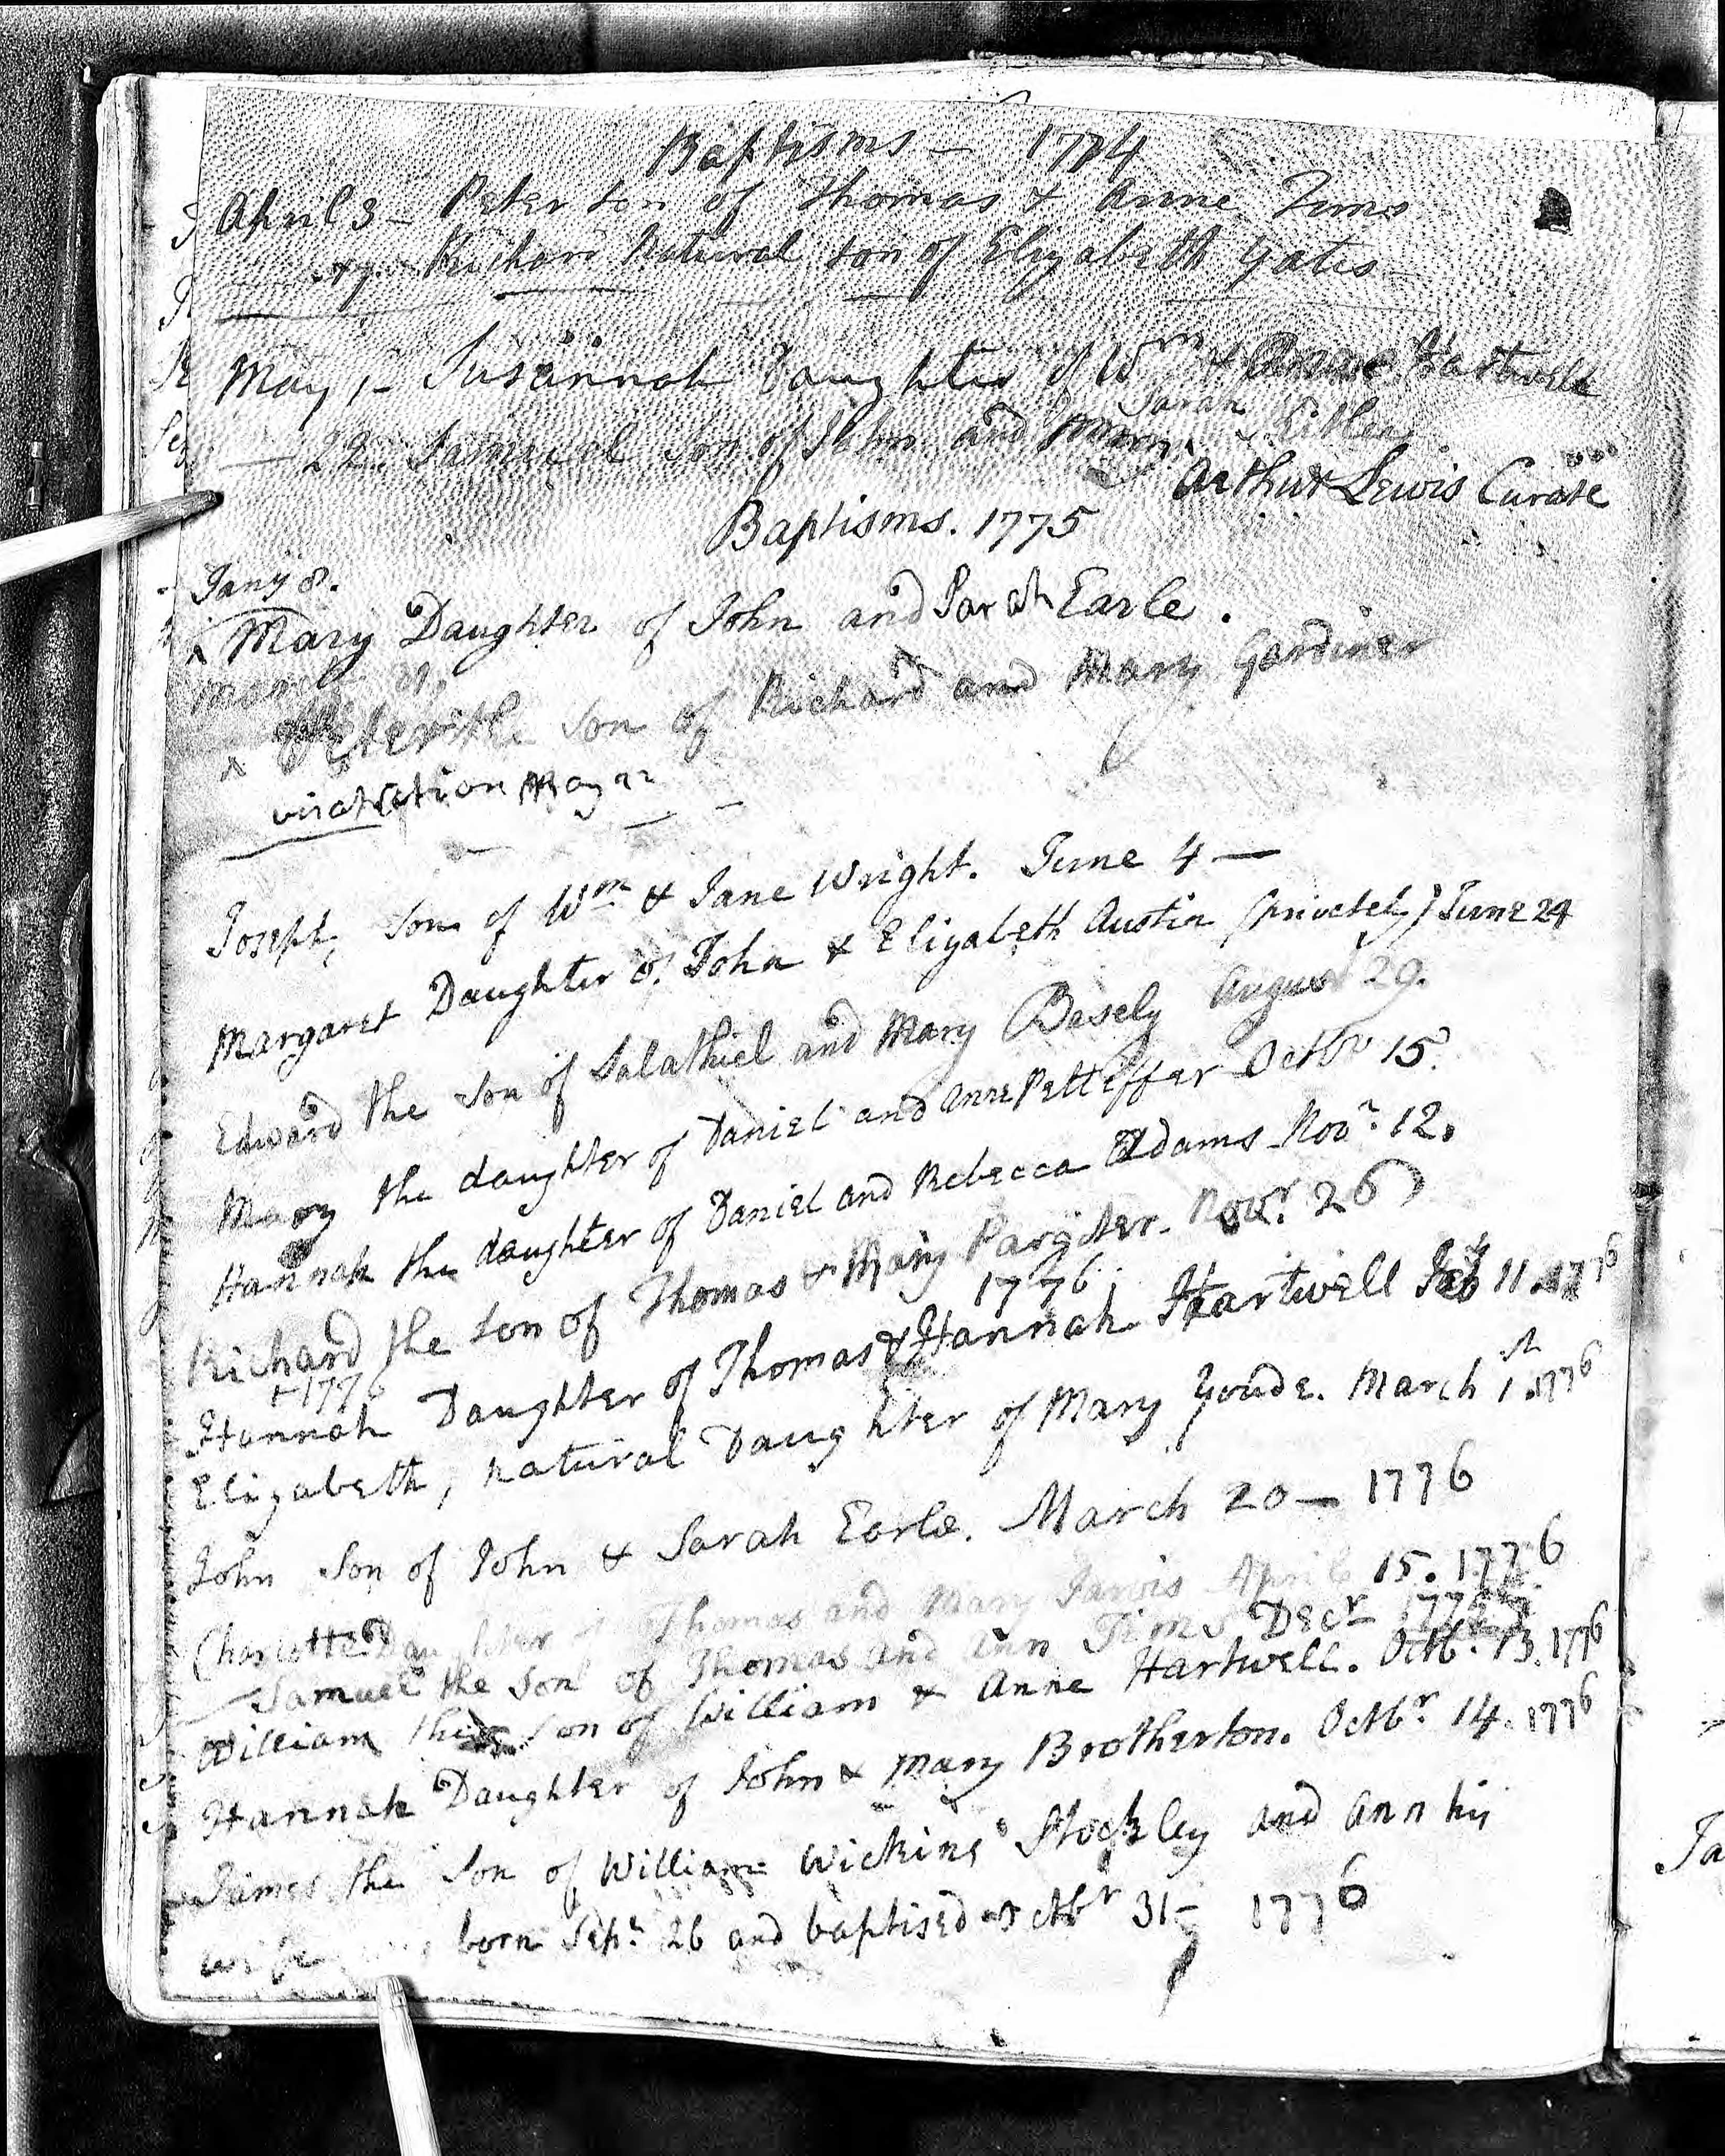 Baptisms - 1774
April 3 - Peter Son of Thomas & Anne Tims
Richard Natural Son of Elizabeth Gates
May 1 - Susannah Daughter of Wm & Anne Hartwell
Sarah
22 Samuel Son of John and
Arthur Lewis Curate
Baptisms. 1775
Jany 8.
x Mary Daughter of John and Sarah Earle.
March
x Son of Richard and Mary Gardiner
May 22
Joseph, Son of Wm & Jane Wright. June 4 —
Margaret Daughter of John & Elizabeth Austin (privately) June 24
Edward the Son of Salathiel and Mary Basely August 29.
Mary the daughter of Daniel and Anne Petteffar Octbr 15.
Hannah the daughter of Daniel and Rebecca Adams Novr. 12.
Richard the Son of Thomas & Mary Pargiter. Novr. 26
1776
+ 1776
Hannah Daughter of Thomas & Hannah Hartwell Feb 11. 1776
Elizabeth, natural Daughter of Mary Goude. March 1st. 1776
John Son of John & Sarah Earle. March 20 — 1776
Charlotte Daughter of Thomas and Mary Jarvis April 15. 1776
Samuel the Son of Thomas and Ann Tims Decr
William the Son of William & Anne Hartwell. Octbr. 13. 1776
Hannah Daughter of John & Mary Brotherton. Octbr 14. 1776
James the Son of William Wickins Stockley and Ann his
wife born Sepr. 26 and baptised Octbr 31 - 1776